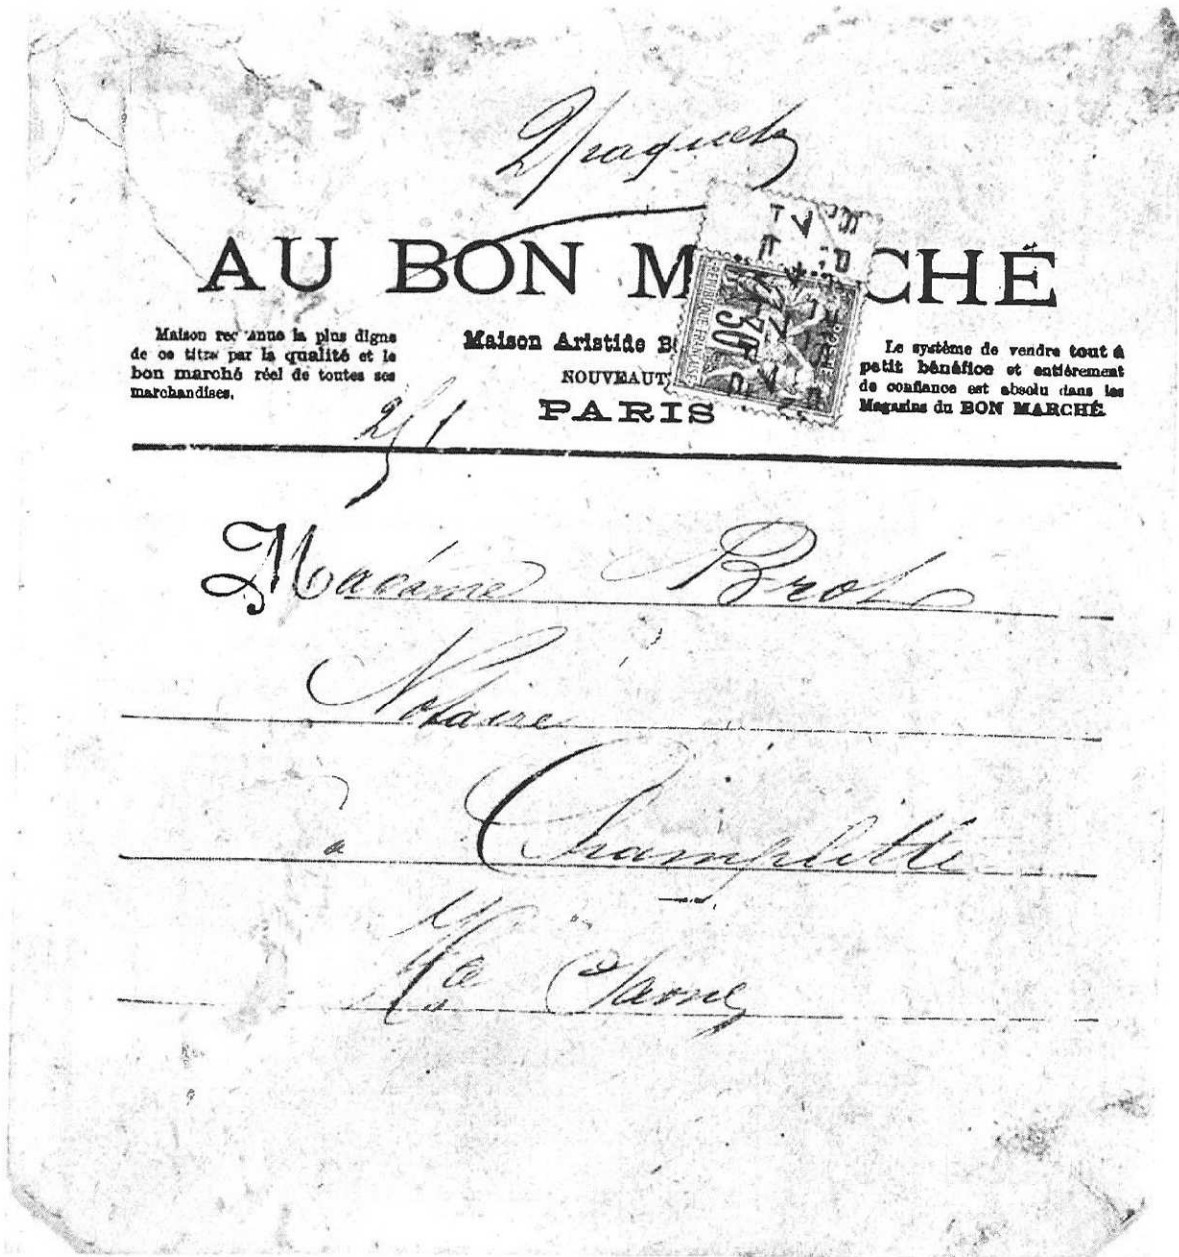 2 paquets
AU BON M CHÉ
Maison rec nnue la plus digne
de ce titre par la qualité et le
bon marché réel de toutes ses
marchandises.
Maison Aristide B
NOUVEAUT
PARIS
Le système de vendre tout à
petit bénéfice et entièrement
de confiance est absolu dans les
Magasins du BON MARCHÉ.
REPUBLIQUE FRANÇAISE
30
Madame Brot
Notaire
à Champlitte
Hte Saône